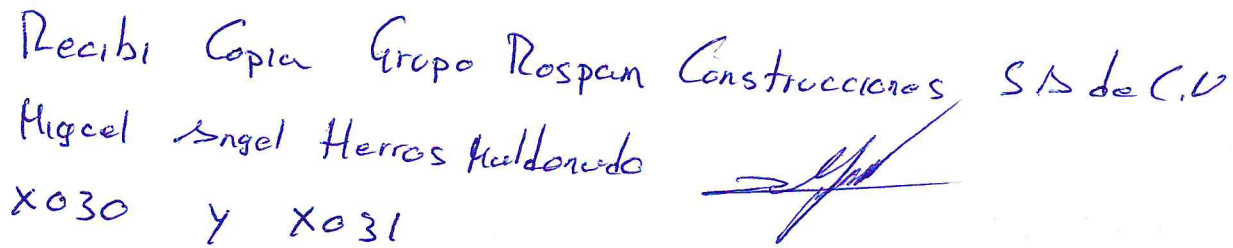 Recibi Copia Grupo Rospam Construcciones SA de C.V
Miguel Angel Herros Maldonado
X030 y X031